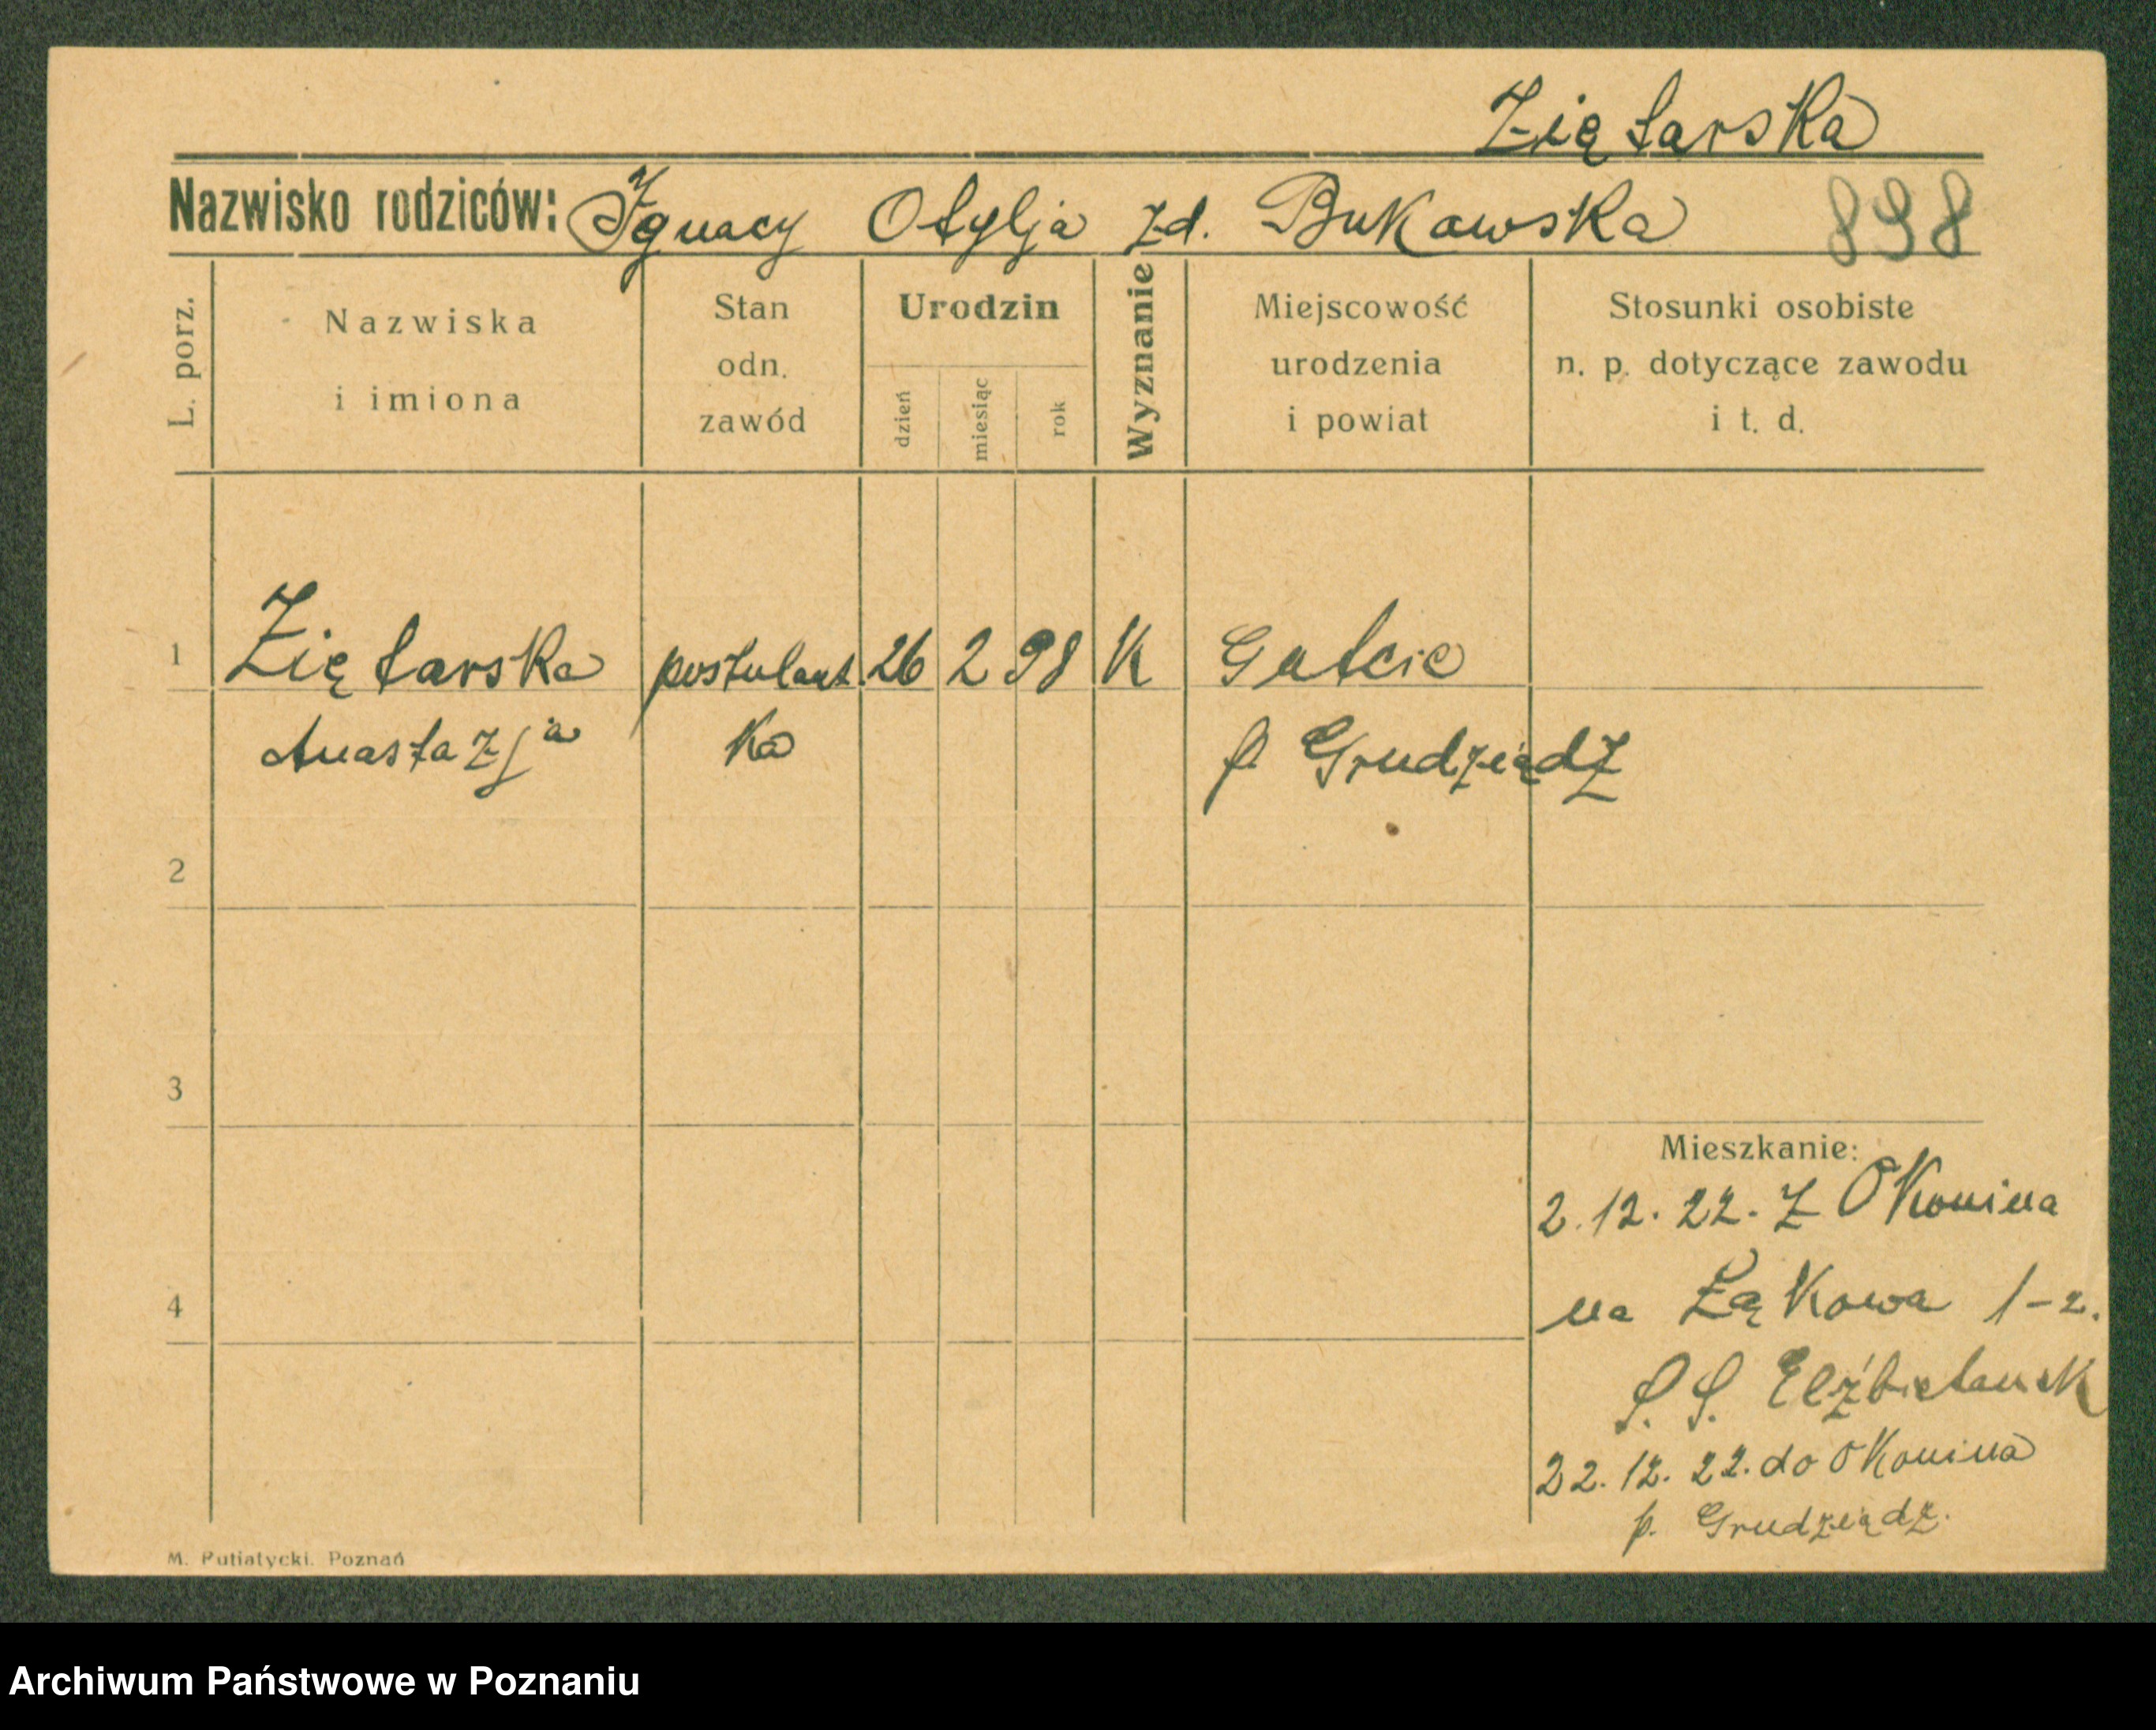 Ziętarska
Nazwisko rodziców: Ignacy Otylja zd. Bukowska
898
L. porz.
Nazwiska
i imiona
Stan
odn.
zawód
Urodzin
dzień
miesiąc
rok
Wyznanie
Miejscowość
urodzenia
i powiat
Stosunki osobiste
n. p. dotyczące zawodu
i t. d.
1 Ziętarska postulant 26 2 98 K
Anastazja ka p. Grudziądz
2
3
Mieszkanie:
2.12.22. z Okonina
4
na Łąkowa 1-2.
S. S. Elżbietanek
22.12.22. do Okonina
p. Grudziądz.
M. Putiatycki. Poznań
Archiwum Państwowe w Poznaniu